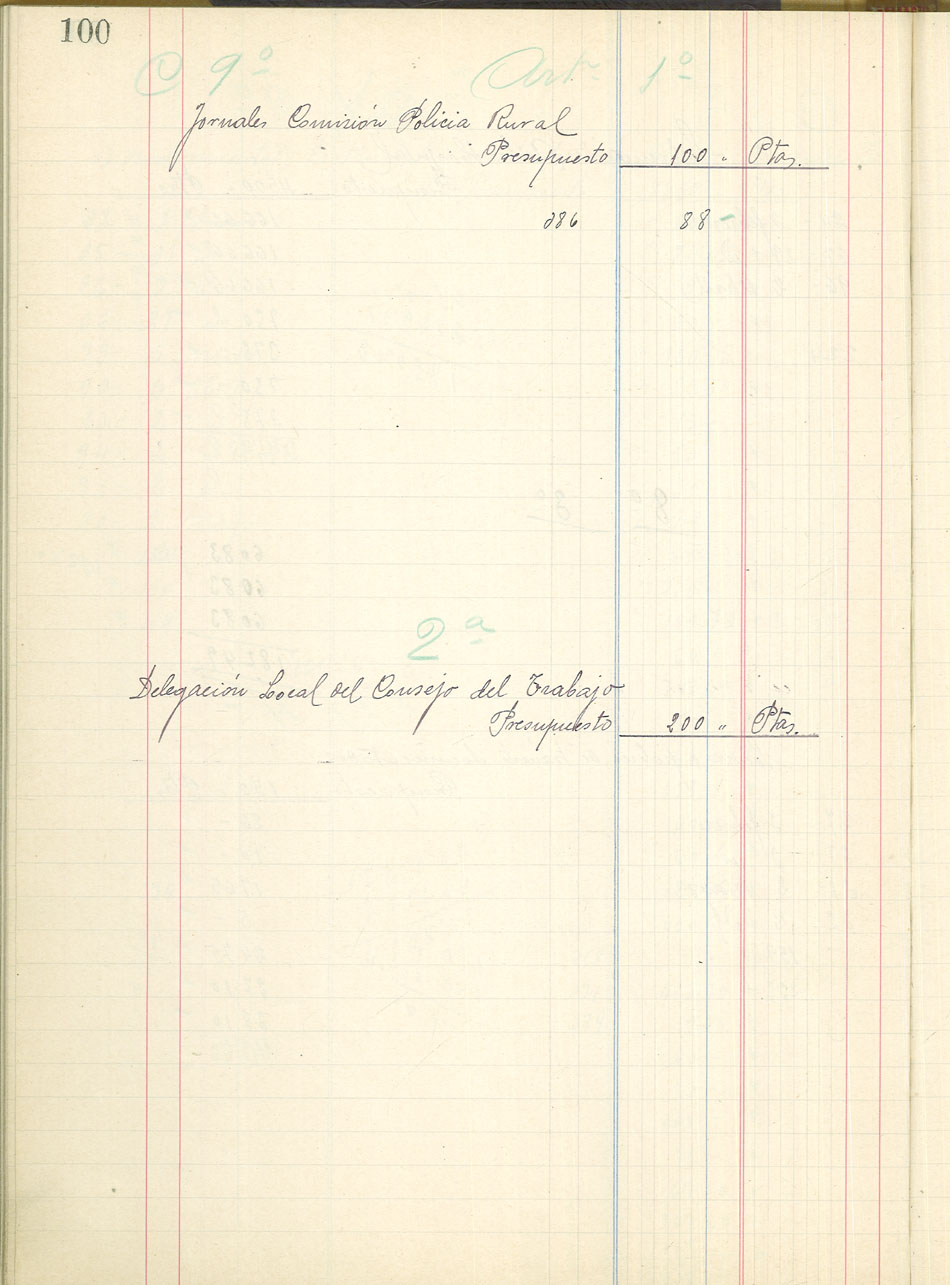 100
C 9º Artº 1º
Jornales Comisión Policia Rural
Presupuesto 100 " Ptas.
386 88 -
2ª
Delegación Local del Consejo del Trabajo
Presupuesto 200 " Ptas.